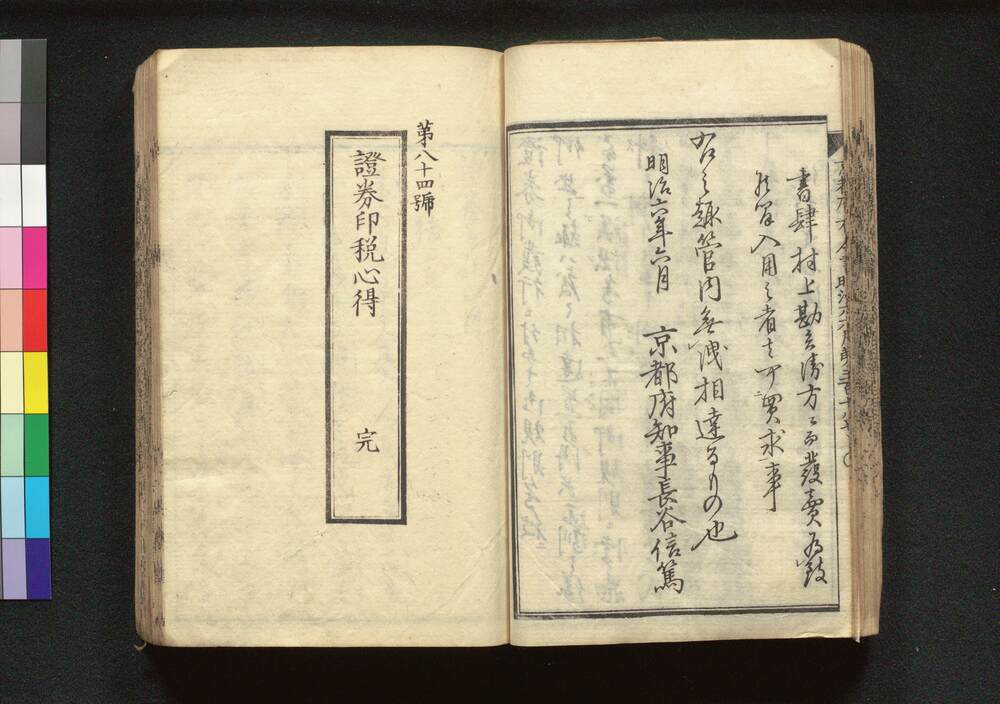 書肆村上勘兵衛方ニ而發賣為致
候間入用之者ハ可買求事
右之趣管内無洩相達るもの也
明治六年六月 京都府知事長谷信篤
第八十四號
證券印税心得 完